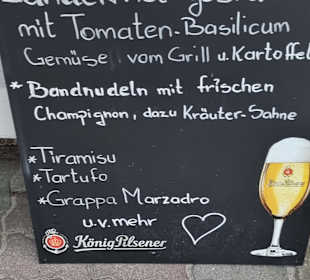 mit Tomaten-Basilicum
Gemüse vom Grill u. Kartoffel
* Bandnudeln mit frischen
Champignon, dazu Kräuter-Sahne
* Tiramisu
* Tartufo
* Grappa Marzadro
u.v.mehr
König Pilsener